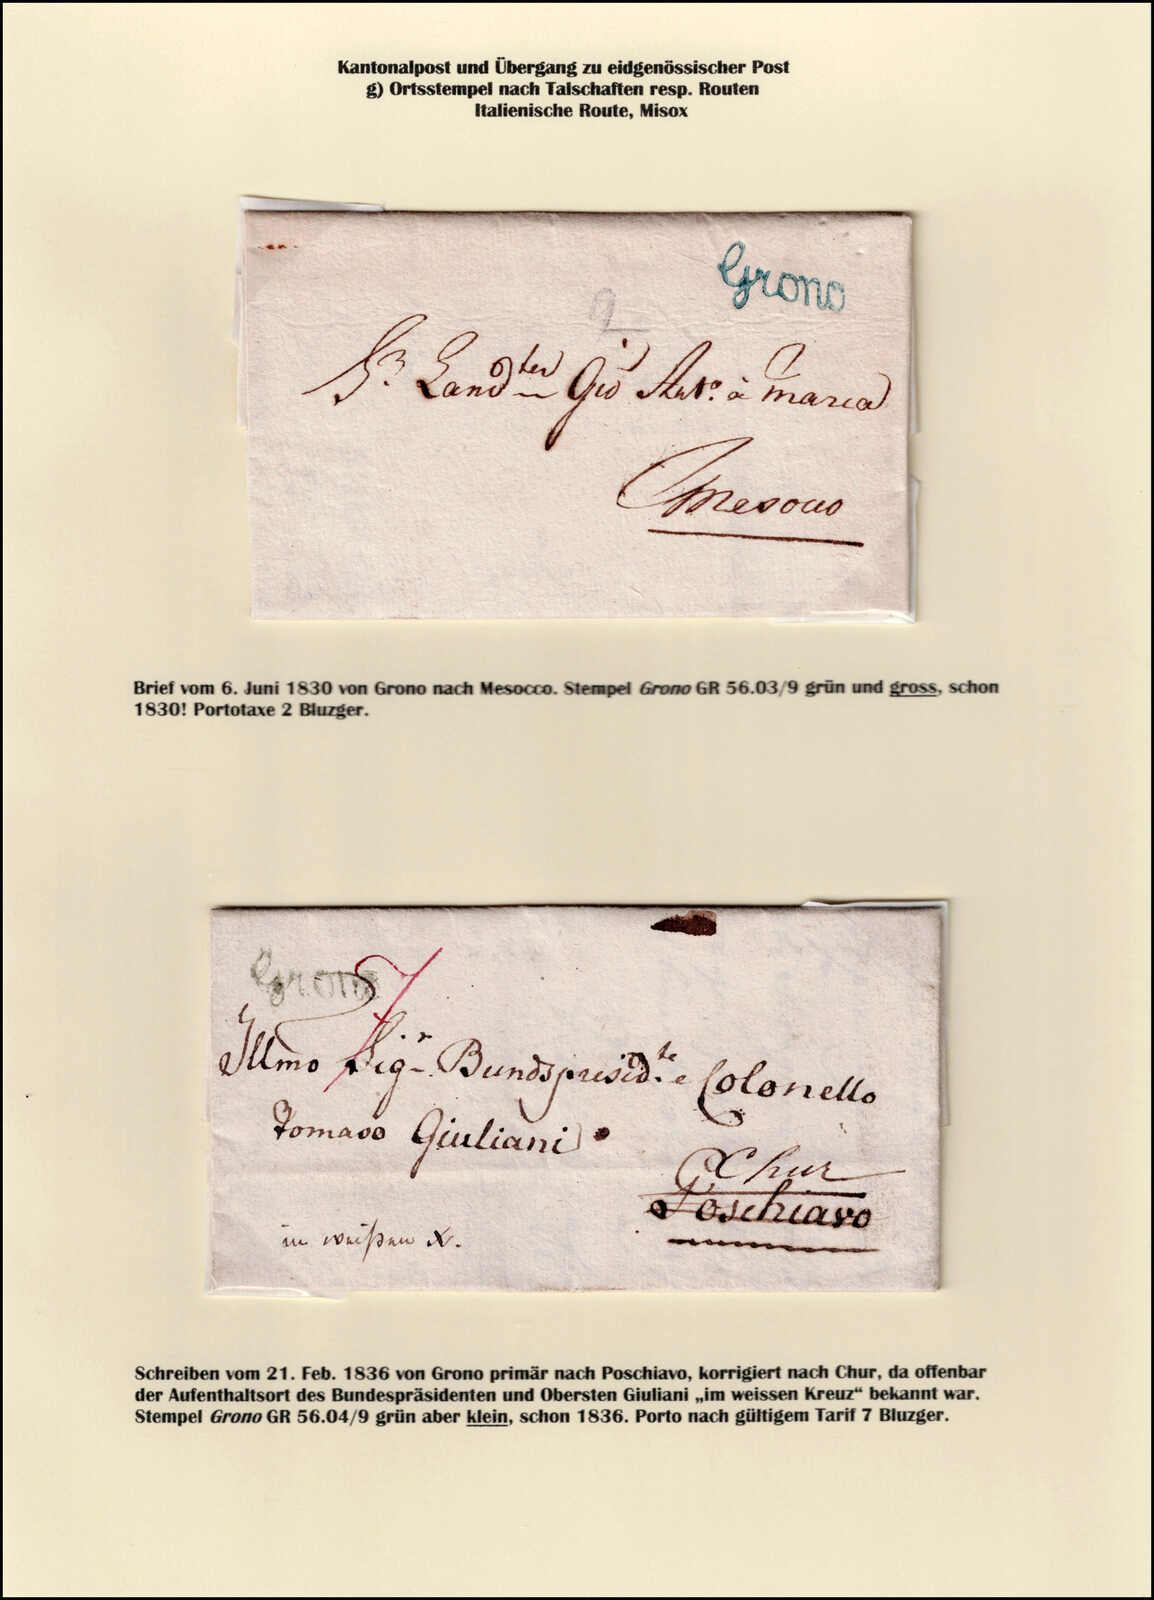 Kantonalpost und Übergang zu eidgenössischer Post
g) Ortsstempel nach Talschaften resp. Routen
Italienische Route, Misox
Grono
2
Sr. Landter Gio Anto. à Marca
Mesocco
Brief vom 6. Juni 1830 von Grono nach Mesocco. Stempel Grono GR 56.03/9 grün und gross, schon
1830! Portotaxe 2 Bluzger.
Grono
7
Illmo Sigr Bundspresidte e Colonello
Tomaso Giuliani
Chur
Poschiavo
in weißen X.
Schreiben vom 21. Feb. 1836 von Grono primär nach Poschiavo, korrigiert nach Chur, da offenbar
der Aufenthaltsort des Bundespräsidenten und Obersten Giuliani „im weissen Kreuz“ bekannt war.
Stempel Grono GR 56.04/9 grün aber klein, schon 1836. Porto nach gültigem Tarif 7 Bluzger.